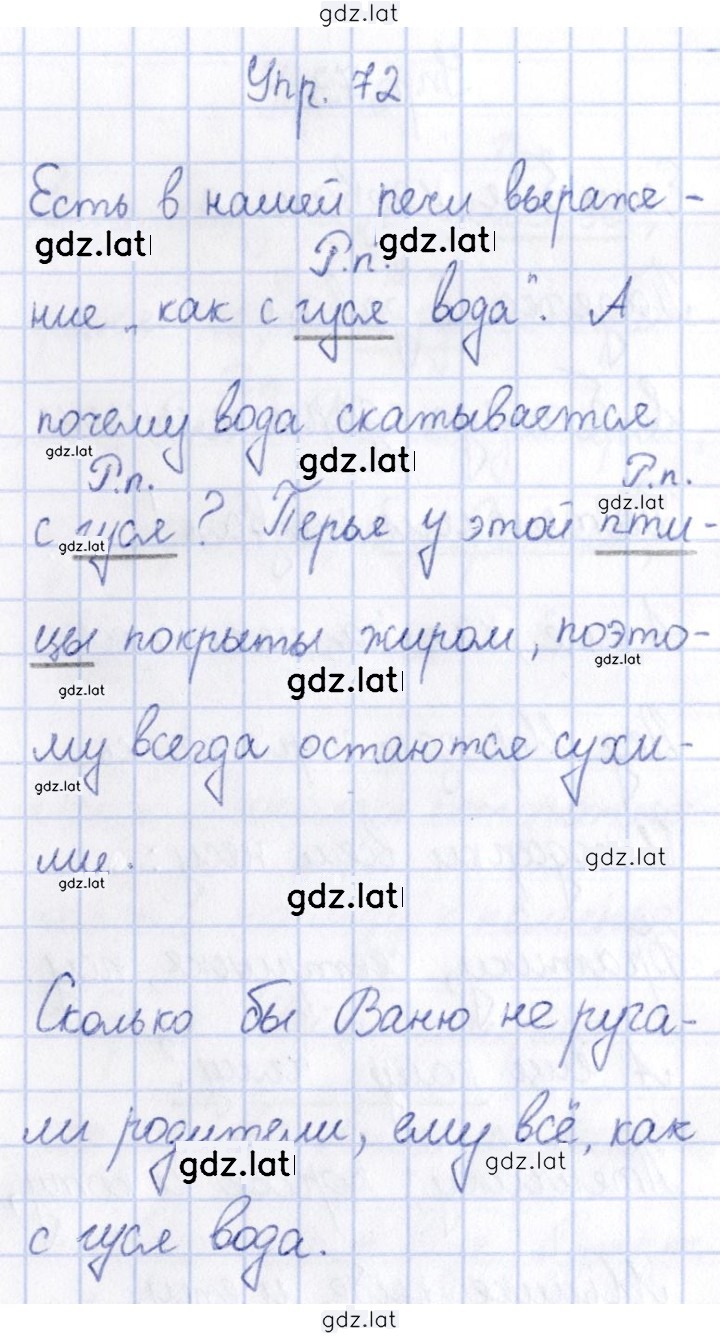 gdz.lat
Упр. 72
Есть в нашей печи выраже-
gdz.lat gdz.lat
Р.п.
ние „как с гуся вода". А
почему вода скатывается
gdz.lat gdz.lat
Р.п. Р.п.
gdz.lat
с гуся? Перья у этой пти-
gdz.lat
цы покрыты жиром, поэто-
gdz.lat gdz.lat gdz.lat
му всегда остаются сухи-
gdz.lat
ми. gdz.lat
gdz.lat gdz.lat
Сколько бы Ваню не руга-
ли родители, ему всё, как
gdz.lat gdz.lat
с гуся вода.
gdz.lat